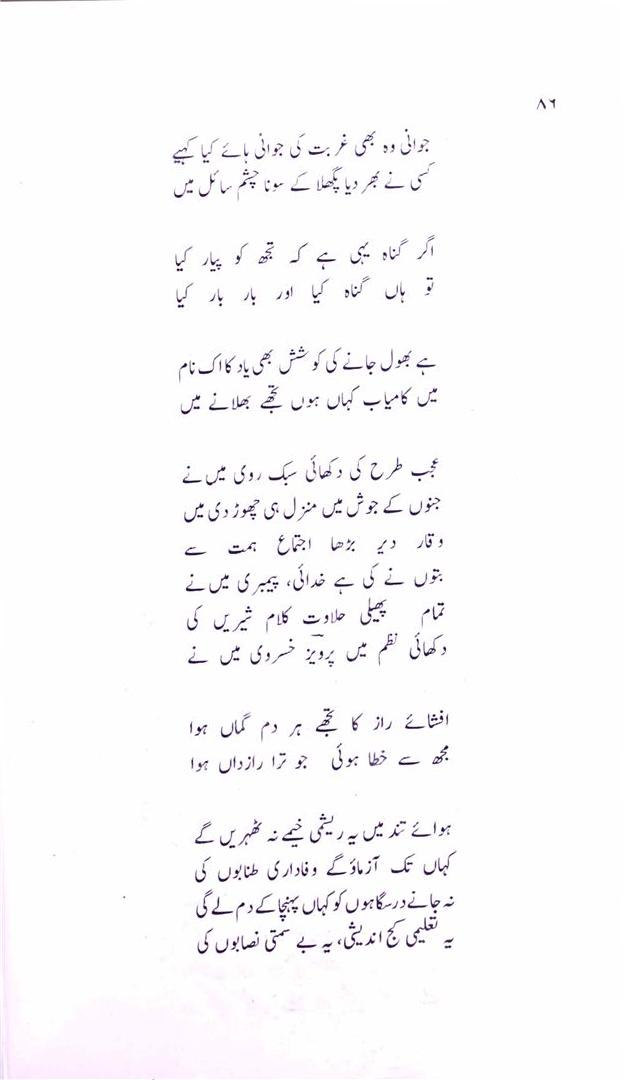 ۸۶
جوانی وہ بھی غربت کی جوانی ہائے کیا کہیے
کسی نے بھر دیا پگھلا کے سونا چشم سائل میں
اگر گناہ یہی ہے کہ تجھ کو پیار کیا
تو ہاں گناہ کیا اور بار بار کیا
ہے بھول جانے کی کوشش بھی یاد کا اک نام
میں کامیاب کہاں ہوں تجھے بھلانے میں
عجب طرح کی دکھائی سبک روی میں نے
جنوں کے جوش میں منزل ہی چھوڑ دی میں
وقار دیر بڑھا اجتماع ہمت سے
بتوں نے کی ہے خدائی، پیمبری میں نے
تمام پھیلی حلاوت کلام شیریں کی
دکھائی نظم میں پرویزؔ خسروی میں نے
افشائے راز کا تجھے ہر دم گماں ہوا
مجھ سے خطا ہوئی جو ترا رازداں ہوا
ہوائے تند میں یہ ریشمی خیمے نہ ٹھہریں گے
کہاں تک آزماؤ گے وفاداری طنابوں کی
نہ جانے درسگاہوں کو کہاں پہنچا کے دم لے گی
یہ تعلیمی کج اندیشی، یہ بے سمتی نصابوں کی